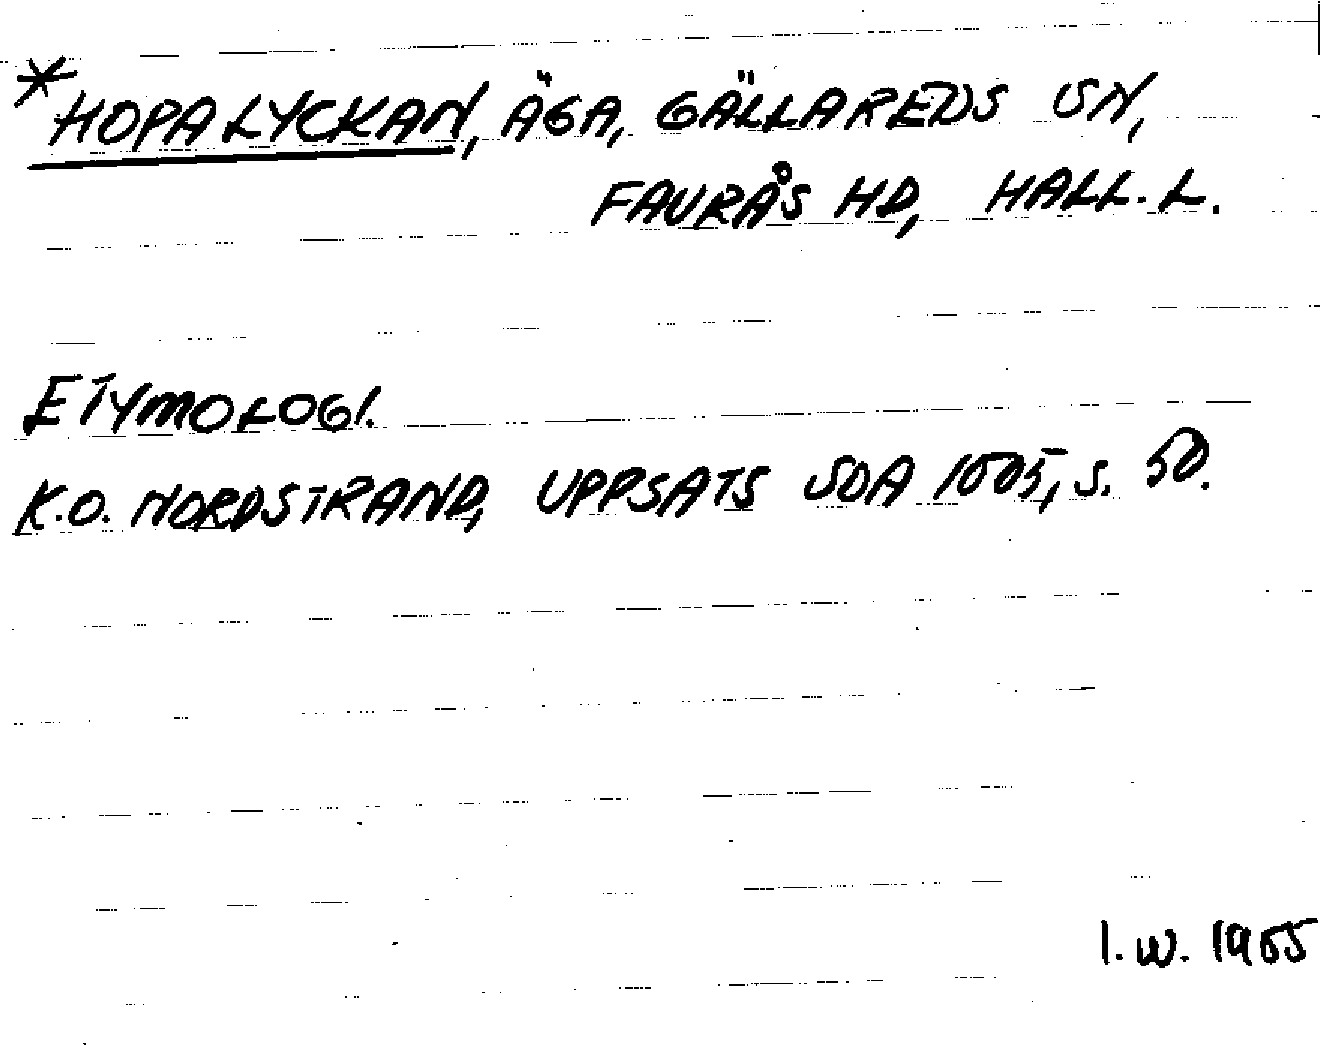 *HOPALYCKAN, ÄGA, GÄLLAREDS SN,
FAURÅS HD, HALL. L.
ETYMOLOGI.
K.O. NORDSTRAND, UPPSATS SOA 1005, S. 50.
I.W. 1965